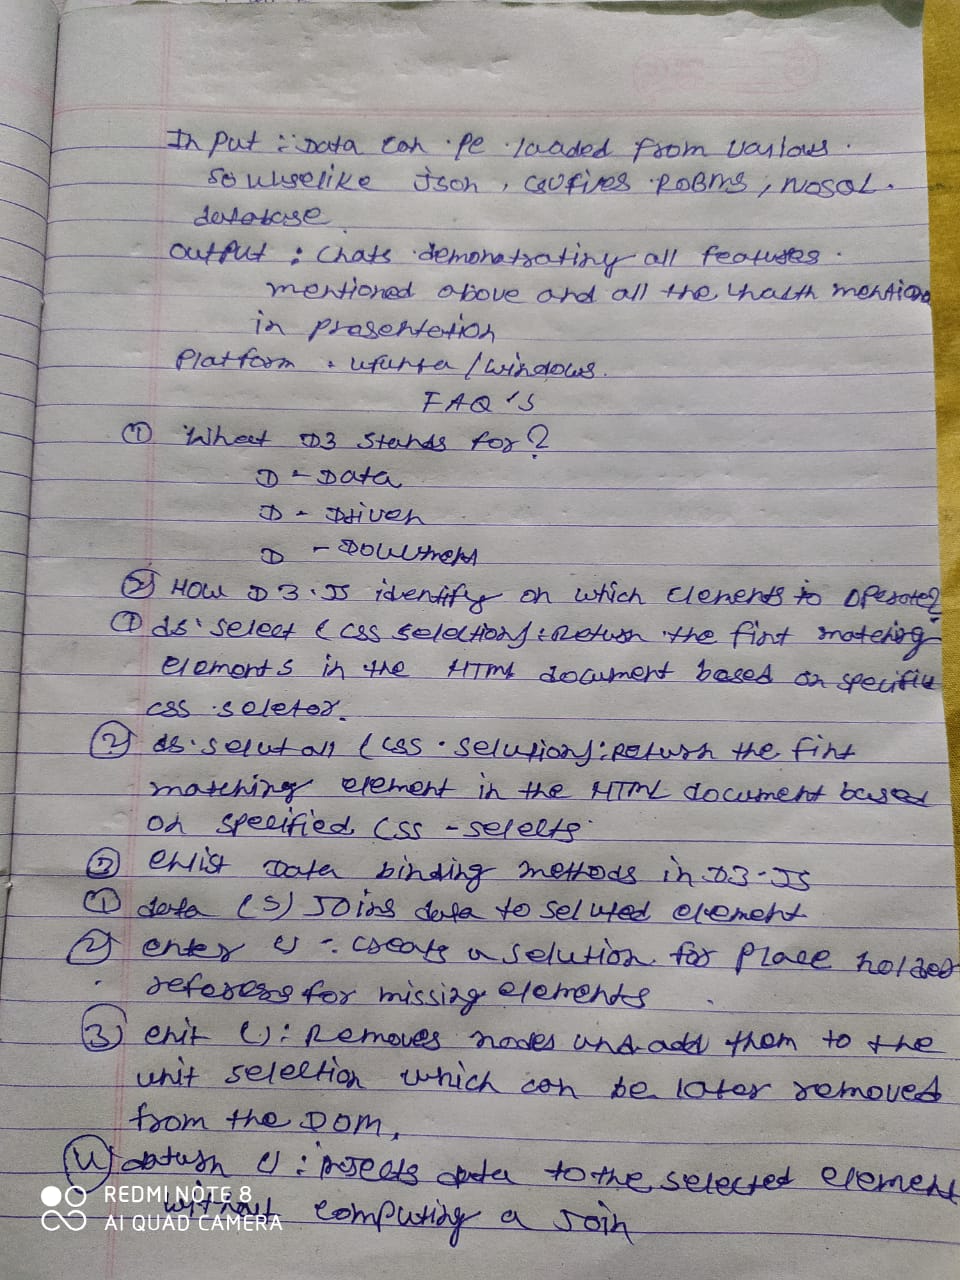 Input :: Data can be loaded from various.
so uhselike Json, csvfires RDBMS, NOSQL.
database.
output : Chats demonstrating all features.
mentioned above and all the mention
in presentation
Platform : /windows.
FAQ's
① What D3 stands for?
D - Data
D - Driven
D - Document
② How D3.JS identify on which elements to operate?
① ds.select (css selection): Return the first matching
elements in the HTML document based on specific
css seletor.
② ds.selut all (css.selution): Return the first
matching element in the HTML document based
on specified CSS - selects
③ enlist Data binding methods in D3-JS
① data (s) Joins data to seluted element
② enter () : creats a selution for place holder
referess for missing elements
③ exit (): Removes nodes and add them to the
unit selection which can be later removed
from the DOM.
④ (): data to the selected element
without computing a Join
REDMI NOTE 8
AI QUAD CAMERA